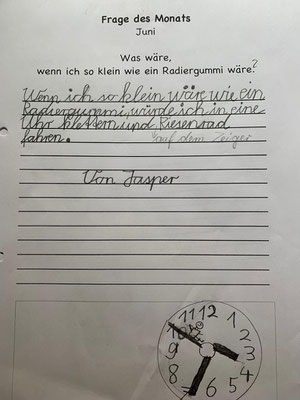 Frage des Monats
Juni
Was wäre,
wenn ich so klein wie ein Radiergummi wäre?
Wenn ich so klein wäre wie ein
Radiergummi, würde ich in eine
Uhr klettern und Riesenrad
fahren. auf dem Zeiger
Von Jasper
11 12 1
10 2
9 3
8 4
7 6 5